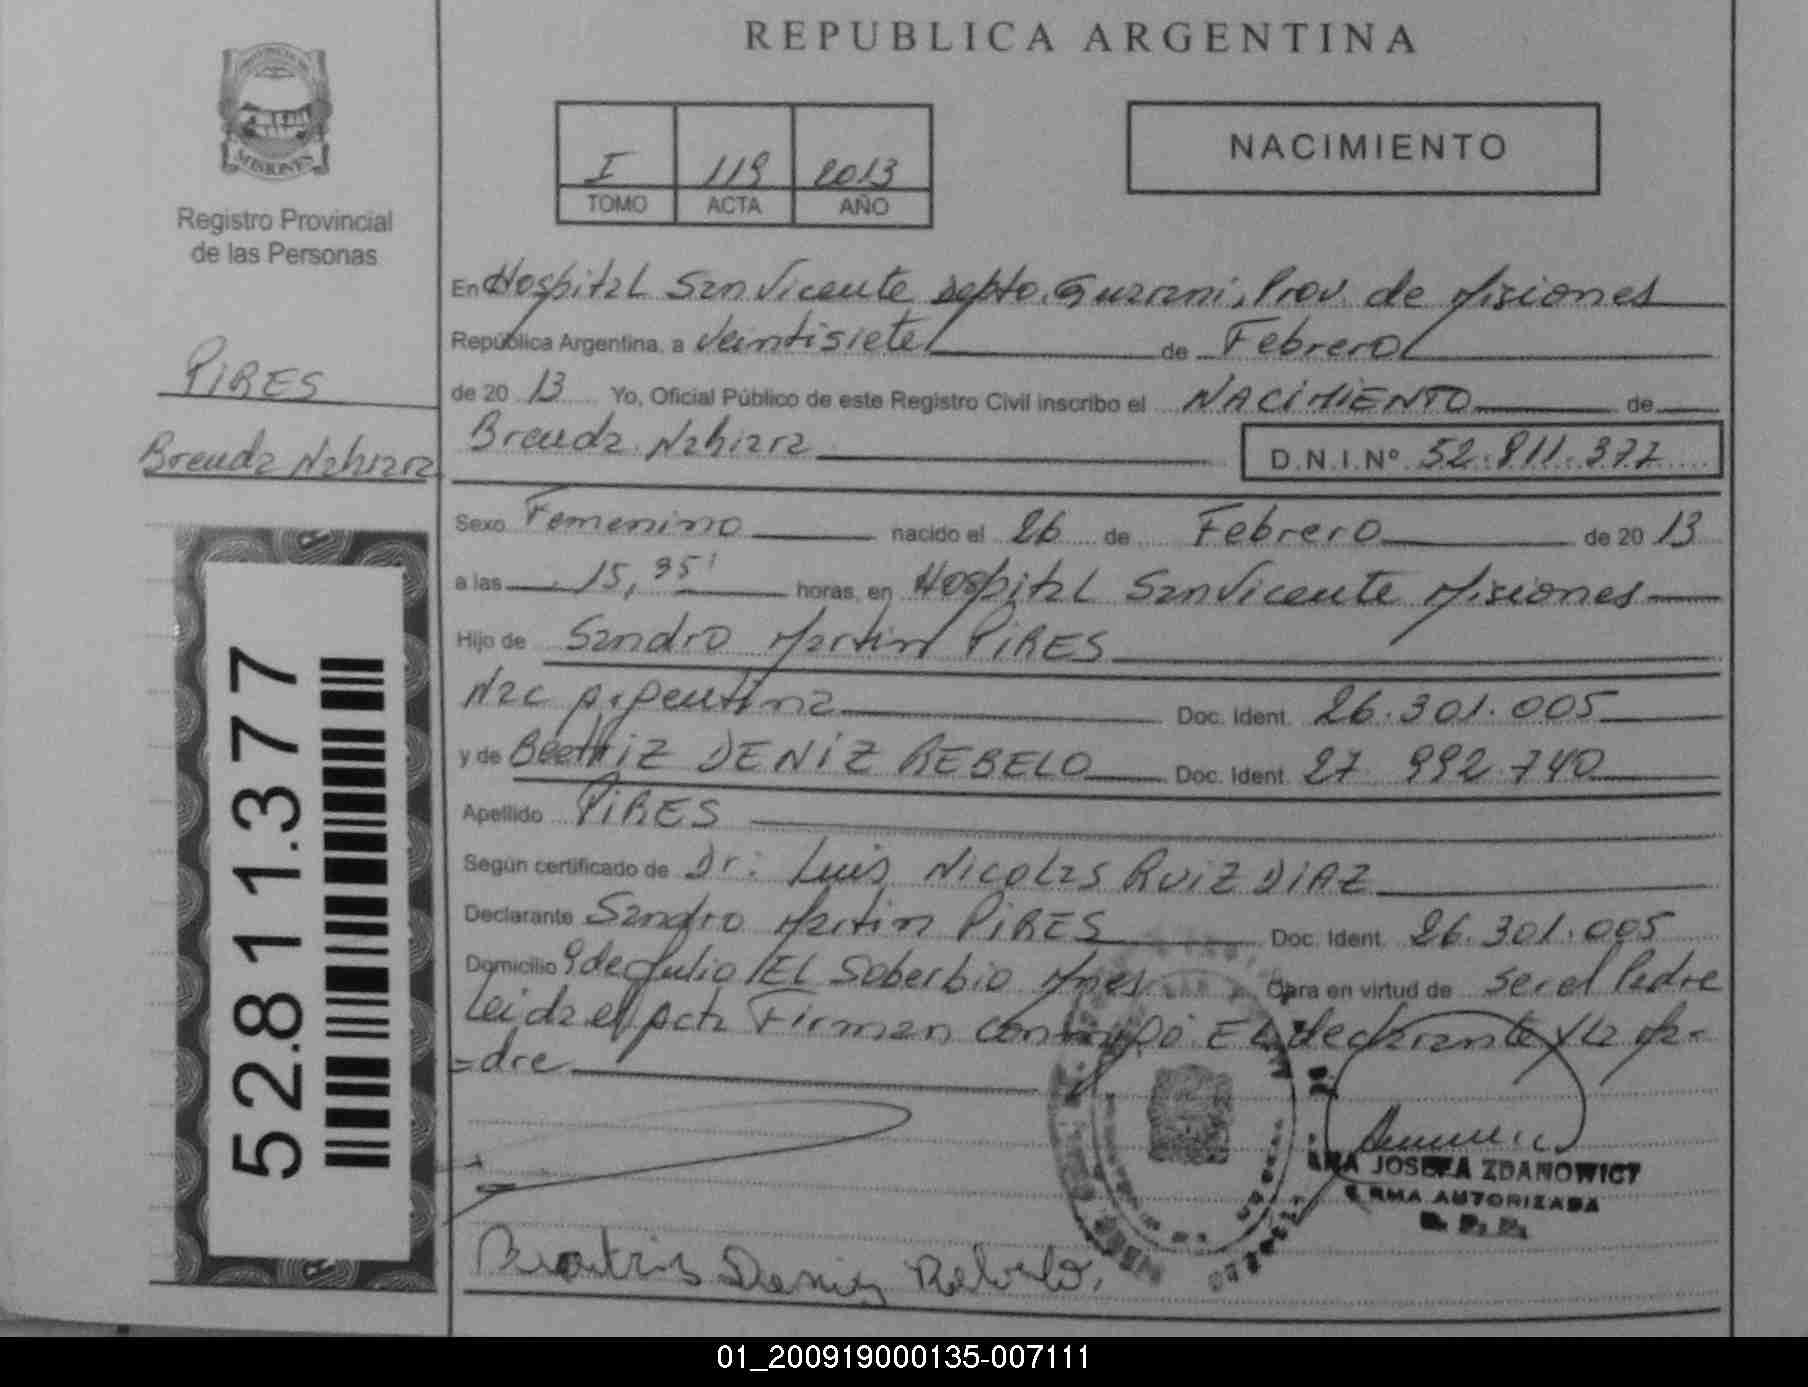 REPUBLICA ARGENTINA
MISIONES
Registro Provincial
de las Personas
I 119 2013
TOMO ACTA AÑO
NACIMIENTO
PIRES
Brenda Nahiara
52.811.377
En Hospital San Vicente Depto. Guarani, Prov. de Misiones
República Argentina, a Veintisiete de Febrero
de 20 13 Yo, Oficial Público de este Registro Civil inscribo el NACIMIENTO de
Brenda Nahiara D.N.I.Nº 52.811.377
Sexo Femenino nacido el 26 de Febrero de 20 13
a las 15,35' horas, en Hospital San Vicente Misiones
Hijo de Sandro Martin PIRES
Nac Argentina Doc. Ident. 26.301.005
y de Beatriz DENIZ REBELO Doc. Ident. 27 992.740
Apellido PIRES
Según certificado de Dr: Luis Nicolas RUIZ DIAZ
Declarante Sandro Martin PIRES Doc. Ident. 26.301.005
Domicilio 9 de Julio / El Soberbio Mnes Obra en virtud de ser el Padre
Leida el Acta Firman conmigo El declarante y la Ma-
=dre
JOSEFA ZDANOWICZ
AUTORIZADA
Beatris Deniz Rebelo.
01_200919000135-007111